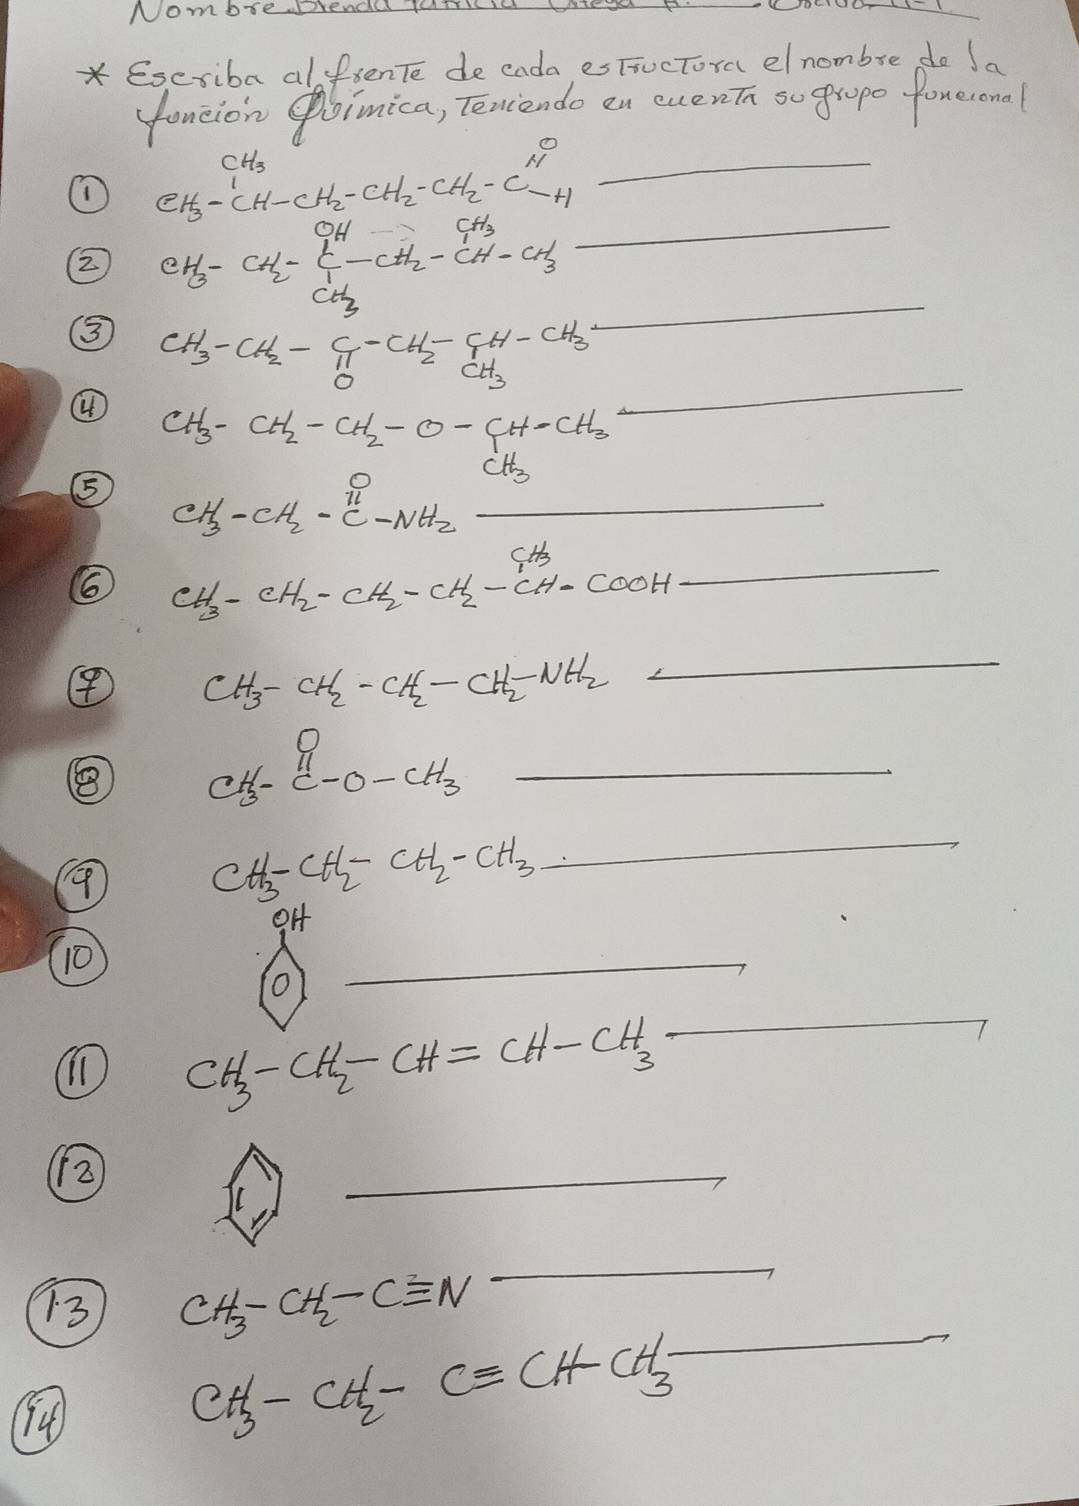 Nombre Brenda Patricia Ortega
* Escriba al frente de cada estructura el nombre de la
función Química, Teniendo en cuenta su grupo funcional
CH3 O
① CH3-CH-CH2-CH2-CH2-C-H
OH CH3
② CH3-CH2-C-CH2-CH-CH3
CH3
③ CH3-CH2-C-CH2-CH-CH3
O CH3
④ CH3-CH2-CH2-O-CH-CH3
CH3
O
⑤ CH3-CH2-C-NH2
CH3
⑥ CH3-CH2-CH2-CH2-CH-COOH
⑦ CH3-CH2-CH2-CH2-NH2
O
⑧ CH3-C-O-CH3
⑨ CH3-CH2-CH2-CH3
OH
⑩
⑪ CH3-CH2-CH=CH-CH3
⑫
⑬ CH3-CH2-C≡N
⑭ CH3-CH2-C≡CH-CH3